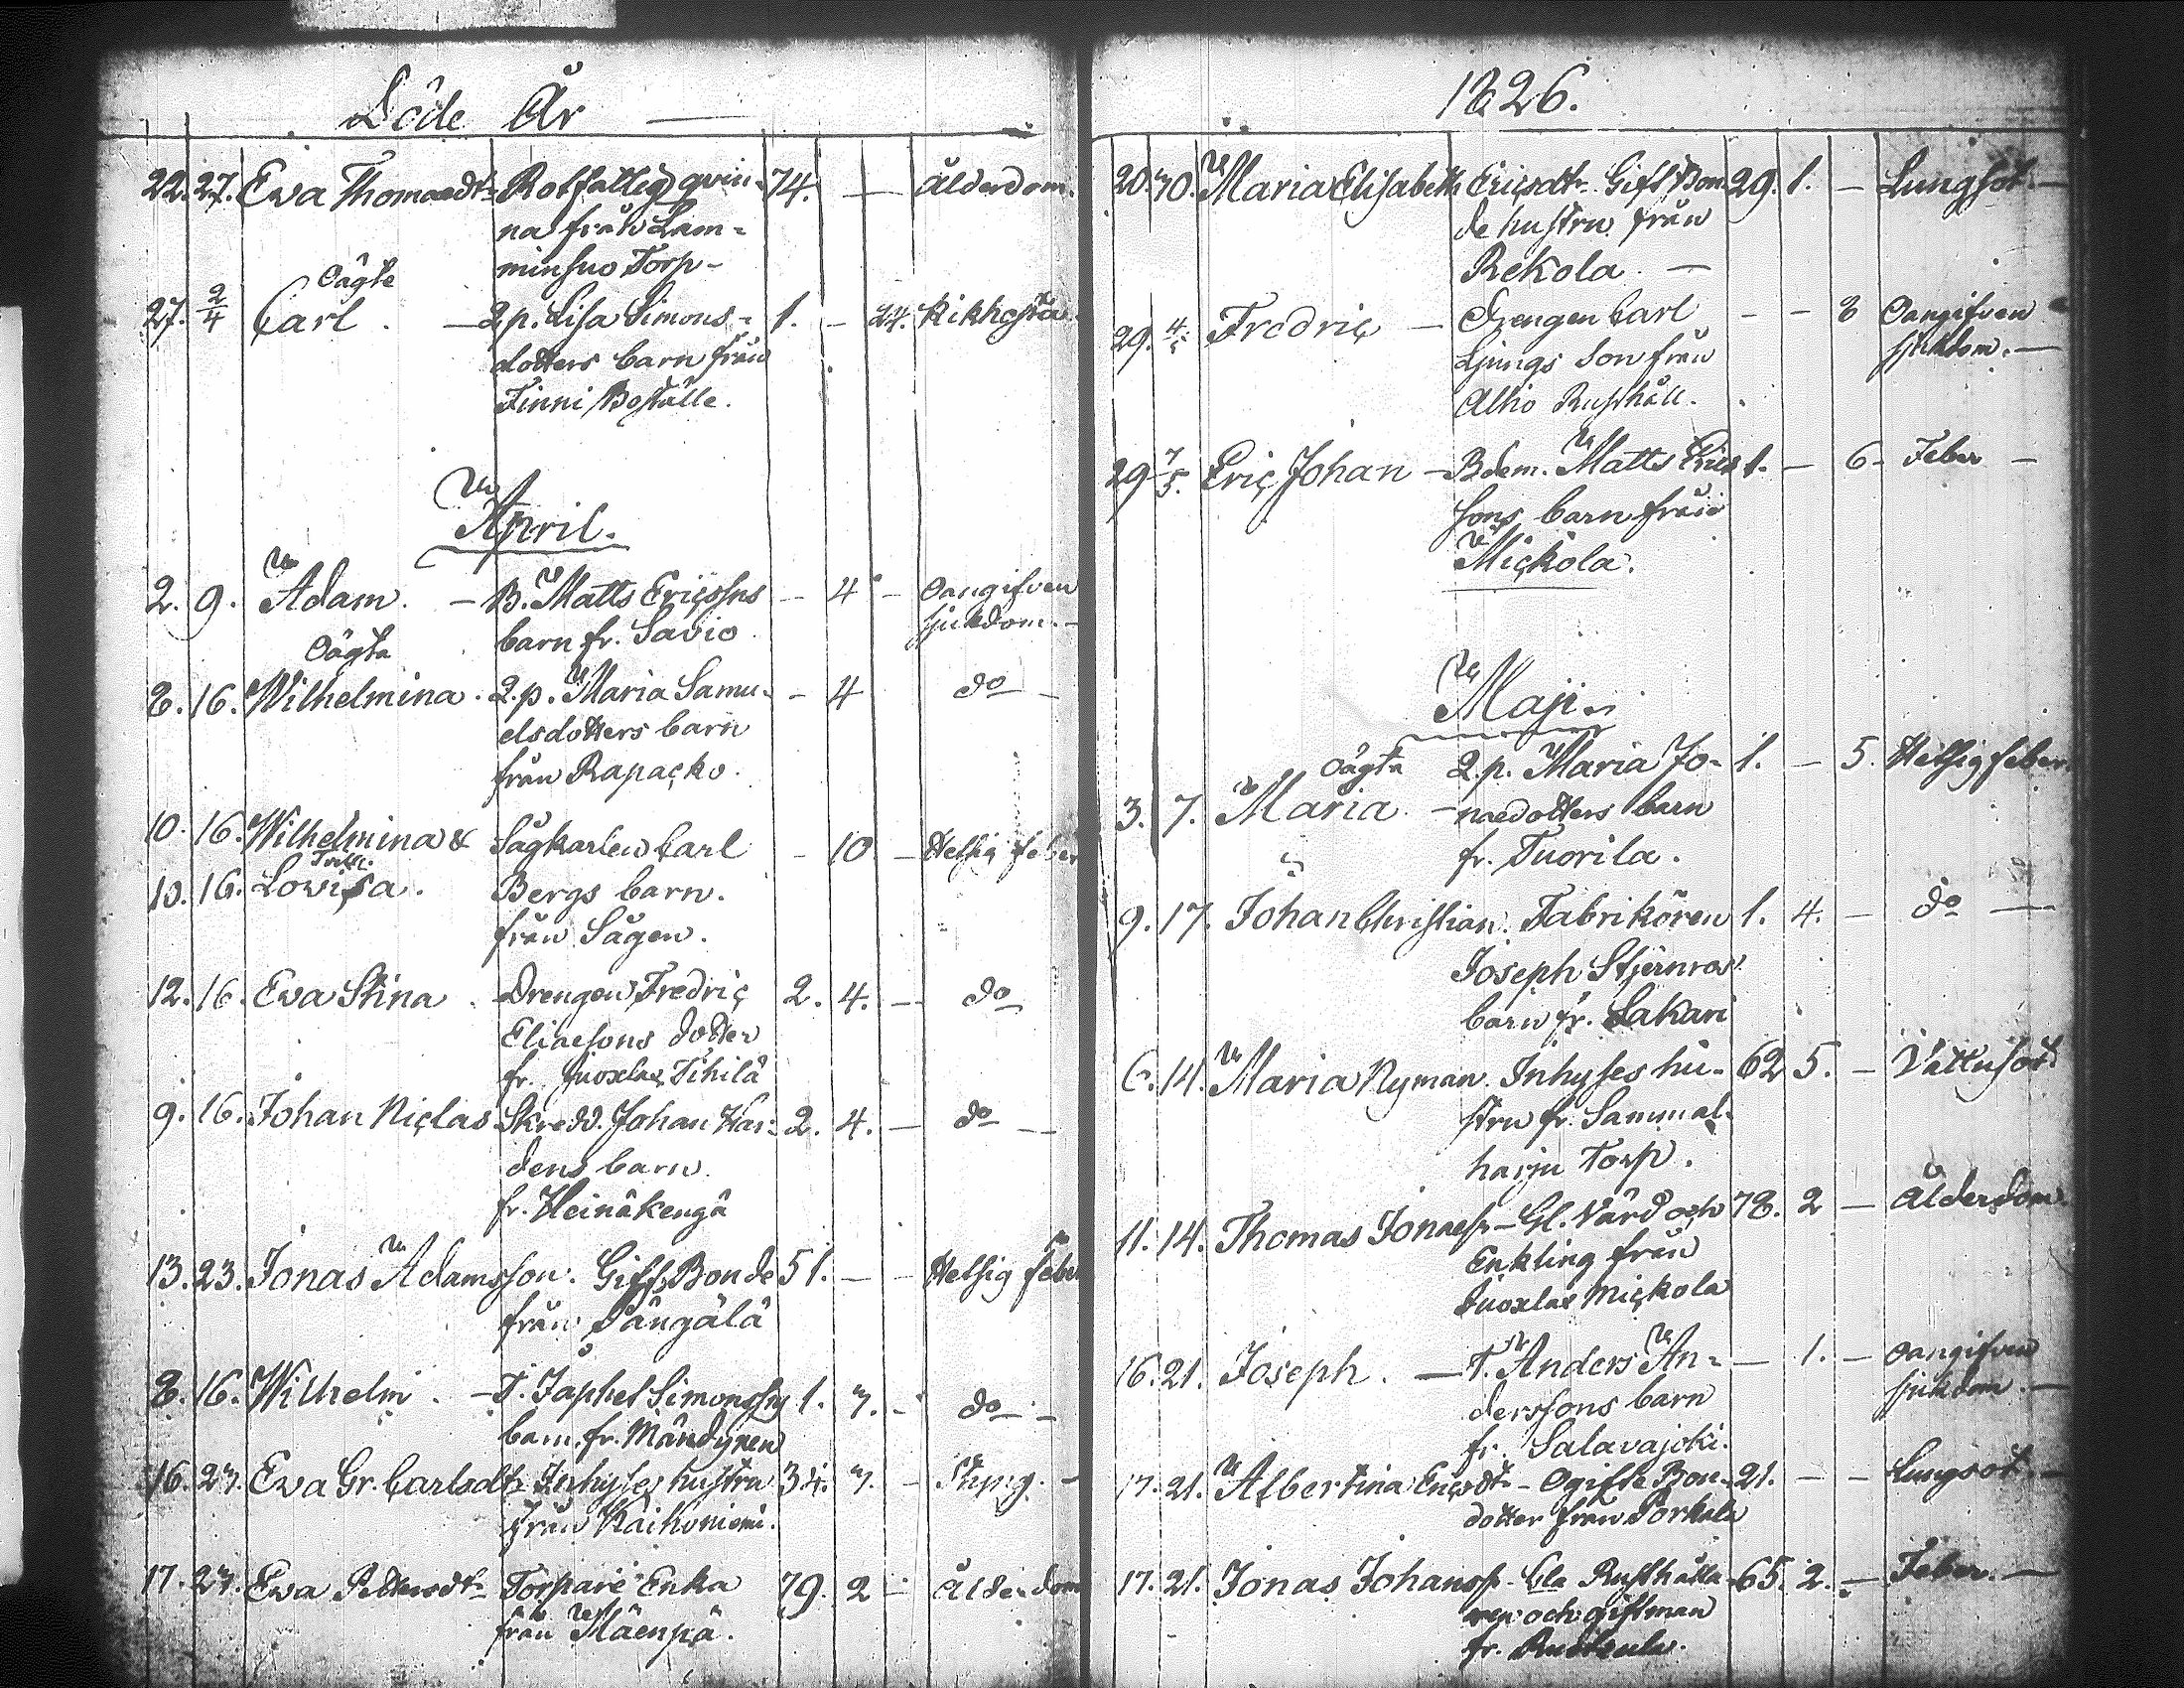 Döde År
22. 27. Eva Thomædtr Rotfattig qvin- 74. — — Ålderdom.
na från Lam-
minsuo Torp-
Oägte
27. 2/4 Carl. — 2. p. Lisa Simons- 1. — 24. Kikhosta.
dotters barn från
Finni Boställe.
April.
2. 9. Adam. — B. Matts Ericssns — 4 — Oangifven
barn fr. Savio sjukdom. —
Oägta
8. 16. Wilhelmina. 2. p. Maria Samu- — 4 do —
elsdotters barn
från Rapacko.
10. 16. Wilhelmina & Sågkarlen Carl — 10 — Hetsig feber
Tvill.
10. 16. Lovisa. Bergs barn.
från Sågen.
12. 16. Eva Stina. Drengen Fredric 2. 4. — do
Eliæsons dotter
fr. Tihilä
9. 16. Johan Niclas Skredd. Johan Har- 2. 4. — do —
dens barn.
fr. Heinäkengä
13. 23. Jonas Adamsson. Gift Bonde 51. — — Hetsig feber
från Sängälä
8. 16. Wilhelm. — T. Japhet Simonssns 1. 7. — do —
barn. fr. Mändynen
16. 27. Eva Gr. Carlsdtr Inhyses hustru 34. 7. — —
från Kaikoniemi.
17. 27. Eva Pettersdtr Torpare Enka 79. 2 — Ålderdom
från Mäenpä.
1826.
20. 30. Maria Elisabeth Ericsdtr Gift Bon- 29. 1. — Lungsot —
de hustru från
Rekola. —
29. 4/5 Fredric — Drengen Carl — — 8 Oangifven
Ljungs Son från sjukdom. —
Alho Rusthåll.
29 7/5. Eric Johan — Bdem. Matts Erics 1. — 6. Feber —
sons barn från
Mickola.
Maji
Oägta 2. p. Maria Jo- 1. — 5. Hetsig feber.
3. 7. Maria. — nædotters barn
fr. Tuorila.
9. 17. Johan Christian. Fabrikören 1. 4. — do —
Joseph Stjernros
barn fr. Sakari
6. 14. Maria Nyman. Inhyses hu- 62 5. — Vattusot
stru fr. Sammal-
harju Torp.
11. 14. Thomas Jonæss. — Gl. Värd och 78. 2 — Ålderdom.
Enkling från
Mickola
16. 21. Joseph. — T. Anders An- — 1. — Oangifven
derssons barn sjukdom. —
fr. Salavajoki.
17. 21. Albertina Ericsdtr — Ogifte Bon- 21. — — Lungsot. —
dotter från Porkala
17. 21. Jonas Johanss. Gla Rusthålla- 65. 2. — Feber. —
ren och giftman
fr.